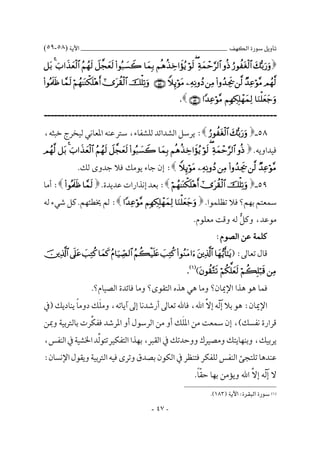 تأويل سورة الكهف الآية (٥٨-٥٩)
﴿وَرَبُّكَ ٱلْغَفُورُ ذُو ٱلرَّحْمَةِ ۖ لَوْ يُؤَاخِذُهُم بِمَا كَسَبُوا۟ لَعَجَّلَ لَهُمُ ٱلْعَذَابَ ۚ بَل
لَّهُم مَّوْعِدٌ لَّن يَجِدُوا۟ مِن دُونِهِۦ مَوْئِلًا ۝٥٨ وَتِلْكَ ٱلْقُرَىٰٓ أَهْلَكْنَٰهُمْ لَمَّا ظَلَمُوا۟
وَجَعَلْنَا لِمَهْلِكِهِم مَّوْعِدًا ۝٥٩﴾.
٥٨- ﴿وَرَبُّكَ ٱلْغَفُورُ﴾: يرسل الشدائد للشفاء، ستر عنه المعاني ليخرج خبثه،
فيداويه. ﴿ذُو ٱلرَّحْمَةِ ۖ لَوْ يُؤَاخِذُهُم بِمَا كَسَبُوا۟ لَعَجَّلَ لَهُمُ ٱلْعَذَابَ ۚ بَل لَّهُم
مَّوْعِدٌ لَّن يَجِدُوا۟ مِن دُونِهِۦ مَوْئِلًا﴾: إن جاء يومك فلا جدوى لك.
٥٩- ﴿وَتِلْكَ ٱلْقُرَىٰٓ أَهْلَكْنَٰهُمْ﴾: بعد إنذارات عديدة. ﴿لَمَّا ظَلَمُوا۟﴾: أما
سمعتم بهم؟ فلا تظلموا. ﴿وَجَعَلْنَا لِمَهْلِكِهِم مَّوْعِدًا﴾: لم يخطئهم. كل شيء له
موعد، وكلٌّ له وقت معلوم.
كلمة عن الصوم:
قال تعالى: ﴿يَٰٓأَيُّهَا ٱلَّذِينَ ءَامَنُوا۟ كُتِبَ عَلَيْكُمُ ٱلصِّيَامُ كَمَا كُتِبَ عَلَى ٱلَّذِينَ
مِن قَبْلِكُمْ لَعَلَّكُمْ تَتَّقُونَ﴾(١)
فما هو هذا الإيمان؟ وما هي هذه التقوى؟ وما فائدة الصيام؟.
الإيمان: هو بلا إلٓه إلاَّ الله، فالله تعالى أرشدنا إلى آياته، وملَك دوماً يناديك (في
قرارة نفسك)، إن سمعت من الملَك أو من الرسول أو المرشد ففكَّرت بالتربية وبمن
يربيك، وبنهايتك ومصيرك ووحدتك في القبر، بهذا التفكير تتولَّد الخشية في النفس،
عندها تلتجئ النفس للفكر فتنظر في الكون بصدق وترى فيه التربية ويقول الإنسان:
لا إلٓه إلاَّ الله ويؤمن بها حقّاً.
(١) سورة البقرة: الآية (١٨٣).
- ٤٧ -